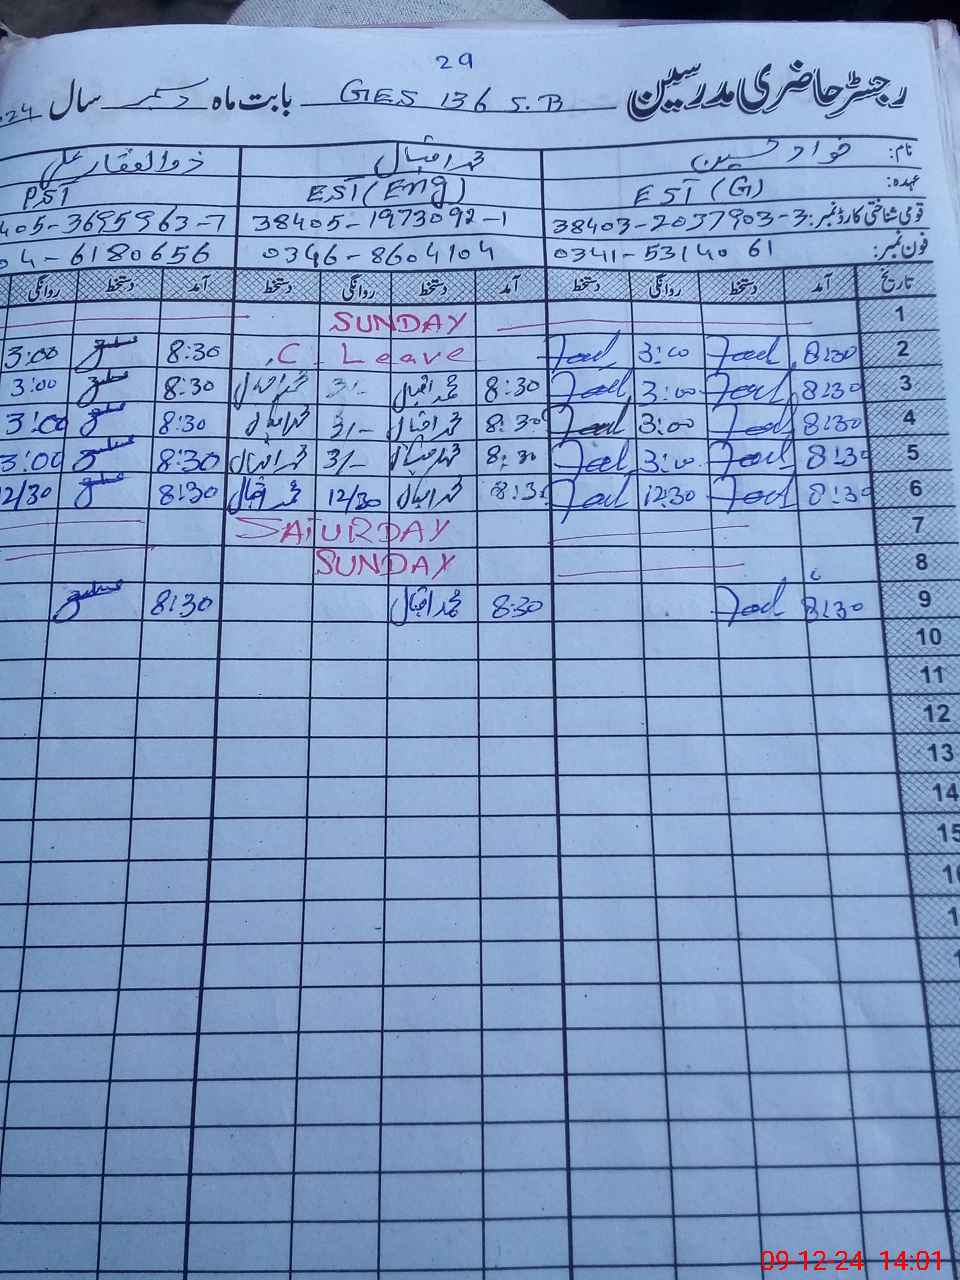 29
رجسٹر حاضری مدرسین GES 136 S.B بابت ماہ دسمبر سال
نام: فواد حسین محمد اقبال ذوالفقار علی
عہدہ: EST (G) EST (Eng) PST
قومی شناختی کارڈ نمبر: 38403-2037903-3 38405-1973092-1 405-3695963-7
فون نمبر: 0341-5314061 0346-8604104 04-6180656
تاریخ آمد دستخط روانگی دستخط آمد دستخط روانگی دستخط آمد دستخط روانگی
1 SUNDAY
2 8:30 Foad 3:00 Foad C Leave 8:30 3:00
3 8:30 Foad 3:00 Foad 8:30 محمد اقبال 3/- محمد اقبال 8:30 3:00
4 8:30 Foad 3:00 Foad 8:30 محمد اقبال 3/- محمد اقبال 8:30 3:00
5 8:30 Foad 3:00 Foad 8:30 محمد اقبال 3/- محمد اقبال 8:30 3:00
6 8:30 Foad 12:30 Foad 8:30 محمد اقبال 12/30 محمد اقبال 8:30 12/30
7 SATURDAY
8 SUNDAY
9 8:30 Foad 8:30 محمد اقبال 8:30
10
11
12
13
14
15
09-12-24 14:01